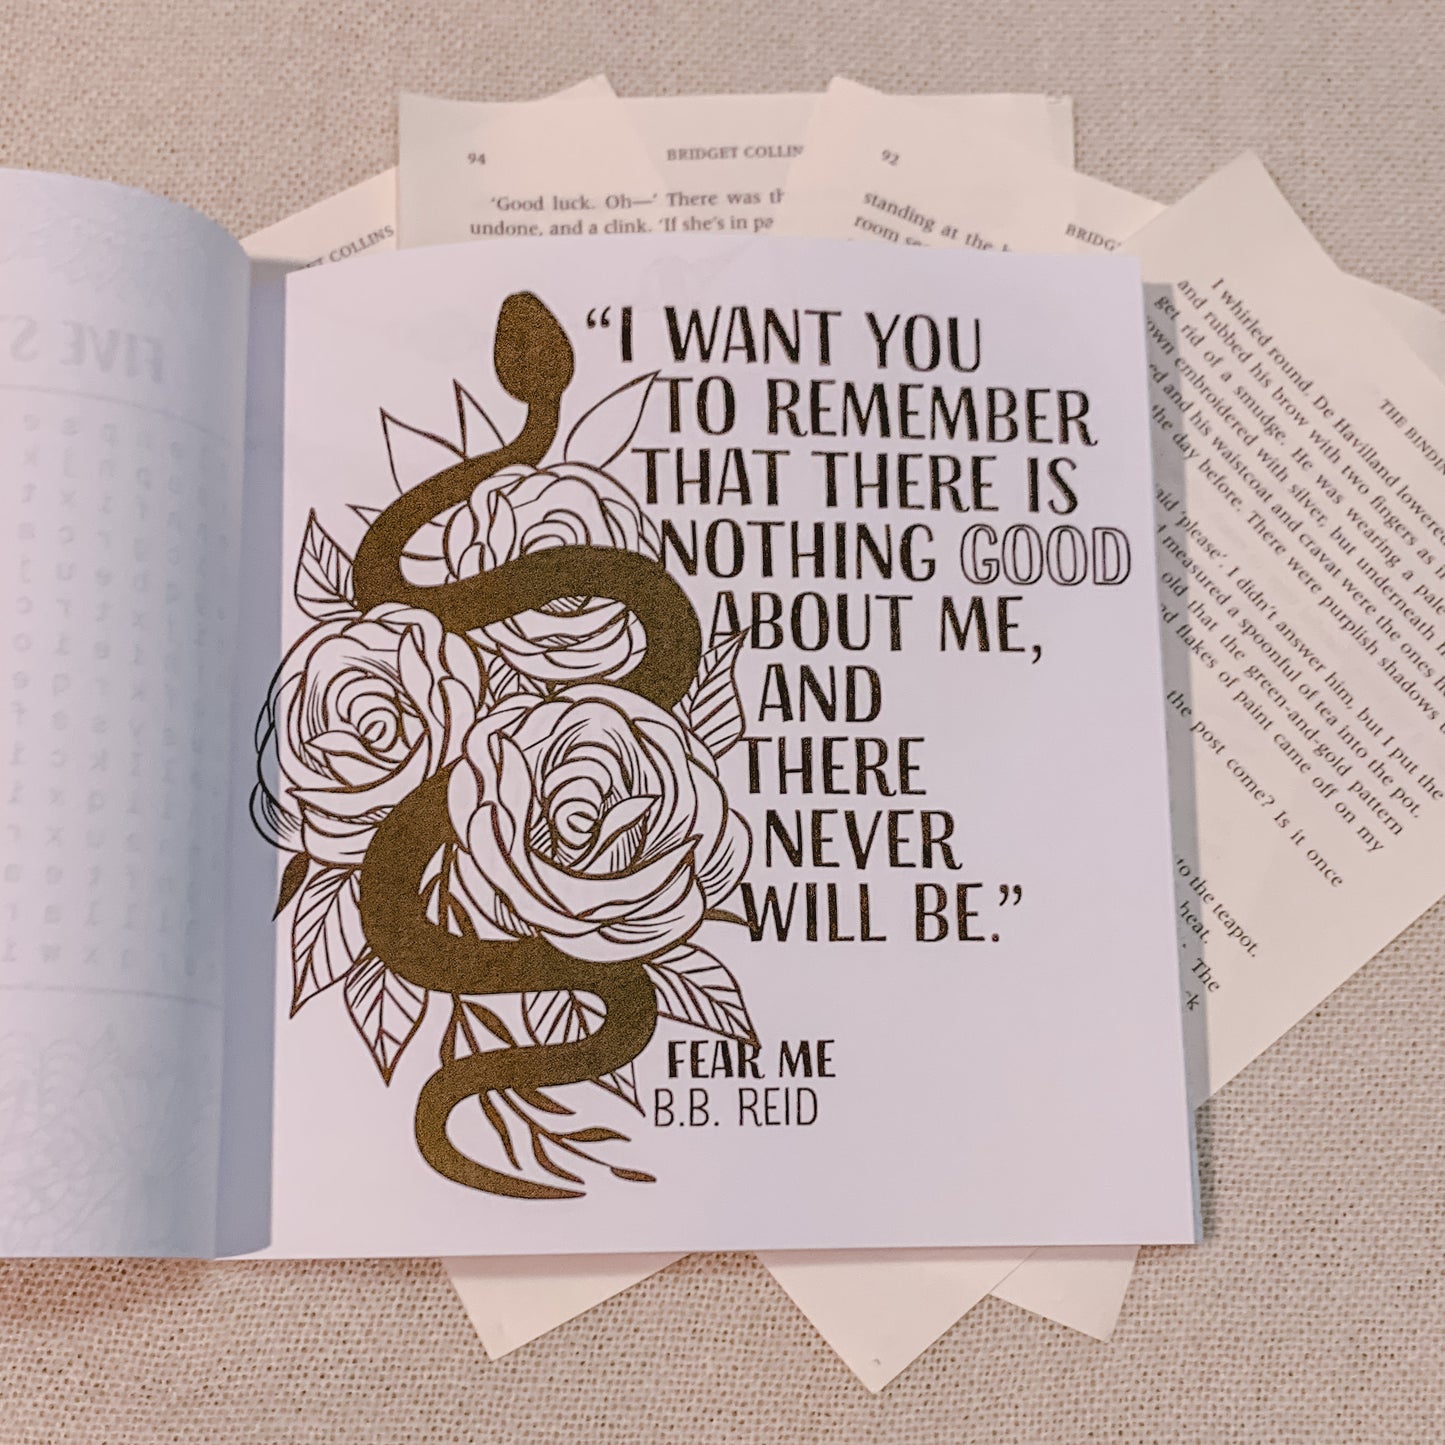 94
BRIDGET COLLIN
92
'Good luck. Oh—' There was
undone, and a clink. 'If she's in
standing at the
room
COLLINS
BRIDG
FIVE S
“I WANT YOU
TO REMEMBER
THAT THERE IS
NOTHING GOOD
ABOUT ME,
AND
THERE
NEVER
WILL BE.”
FEAR ME
B.B. REID
THE BINDIN
I whirled round. De Havilland lowered
and rubbed his brow with two fingers as
get rid of a smudge. He was wearing a pale
own embroidered with silver, but underneath
ed and his waistcoat and cravat were the ones
the day before. There were purplish shadows
aid 'please'. I didn't answer him, but I put the
measured a spoonful of tea into the pot.
old that the green-and-gold pattern
flakes of paint came off on my
the post come? Is it once
to the teapot.
heat.
The